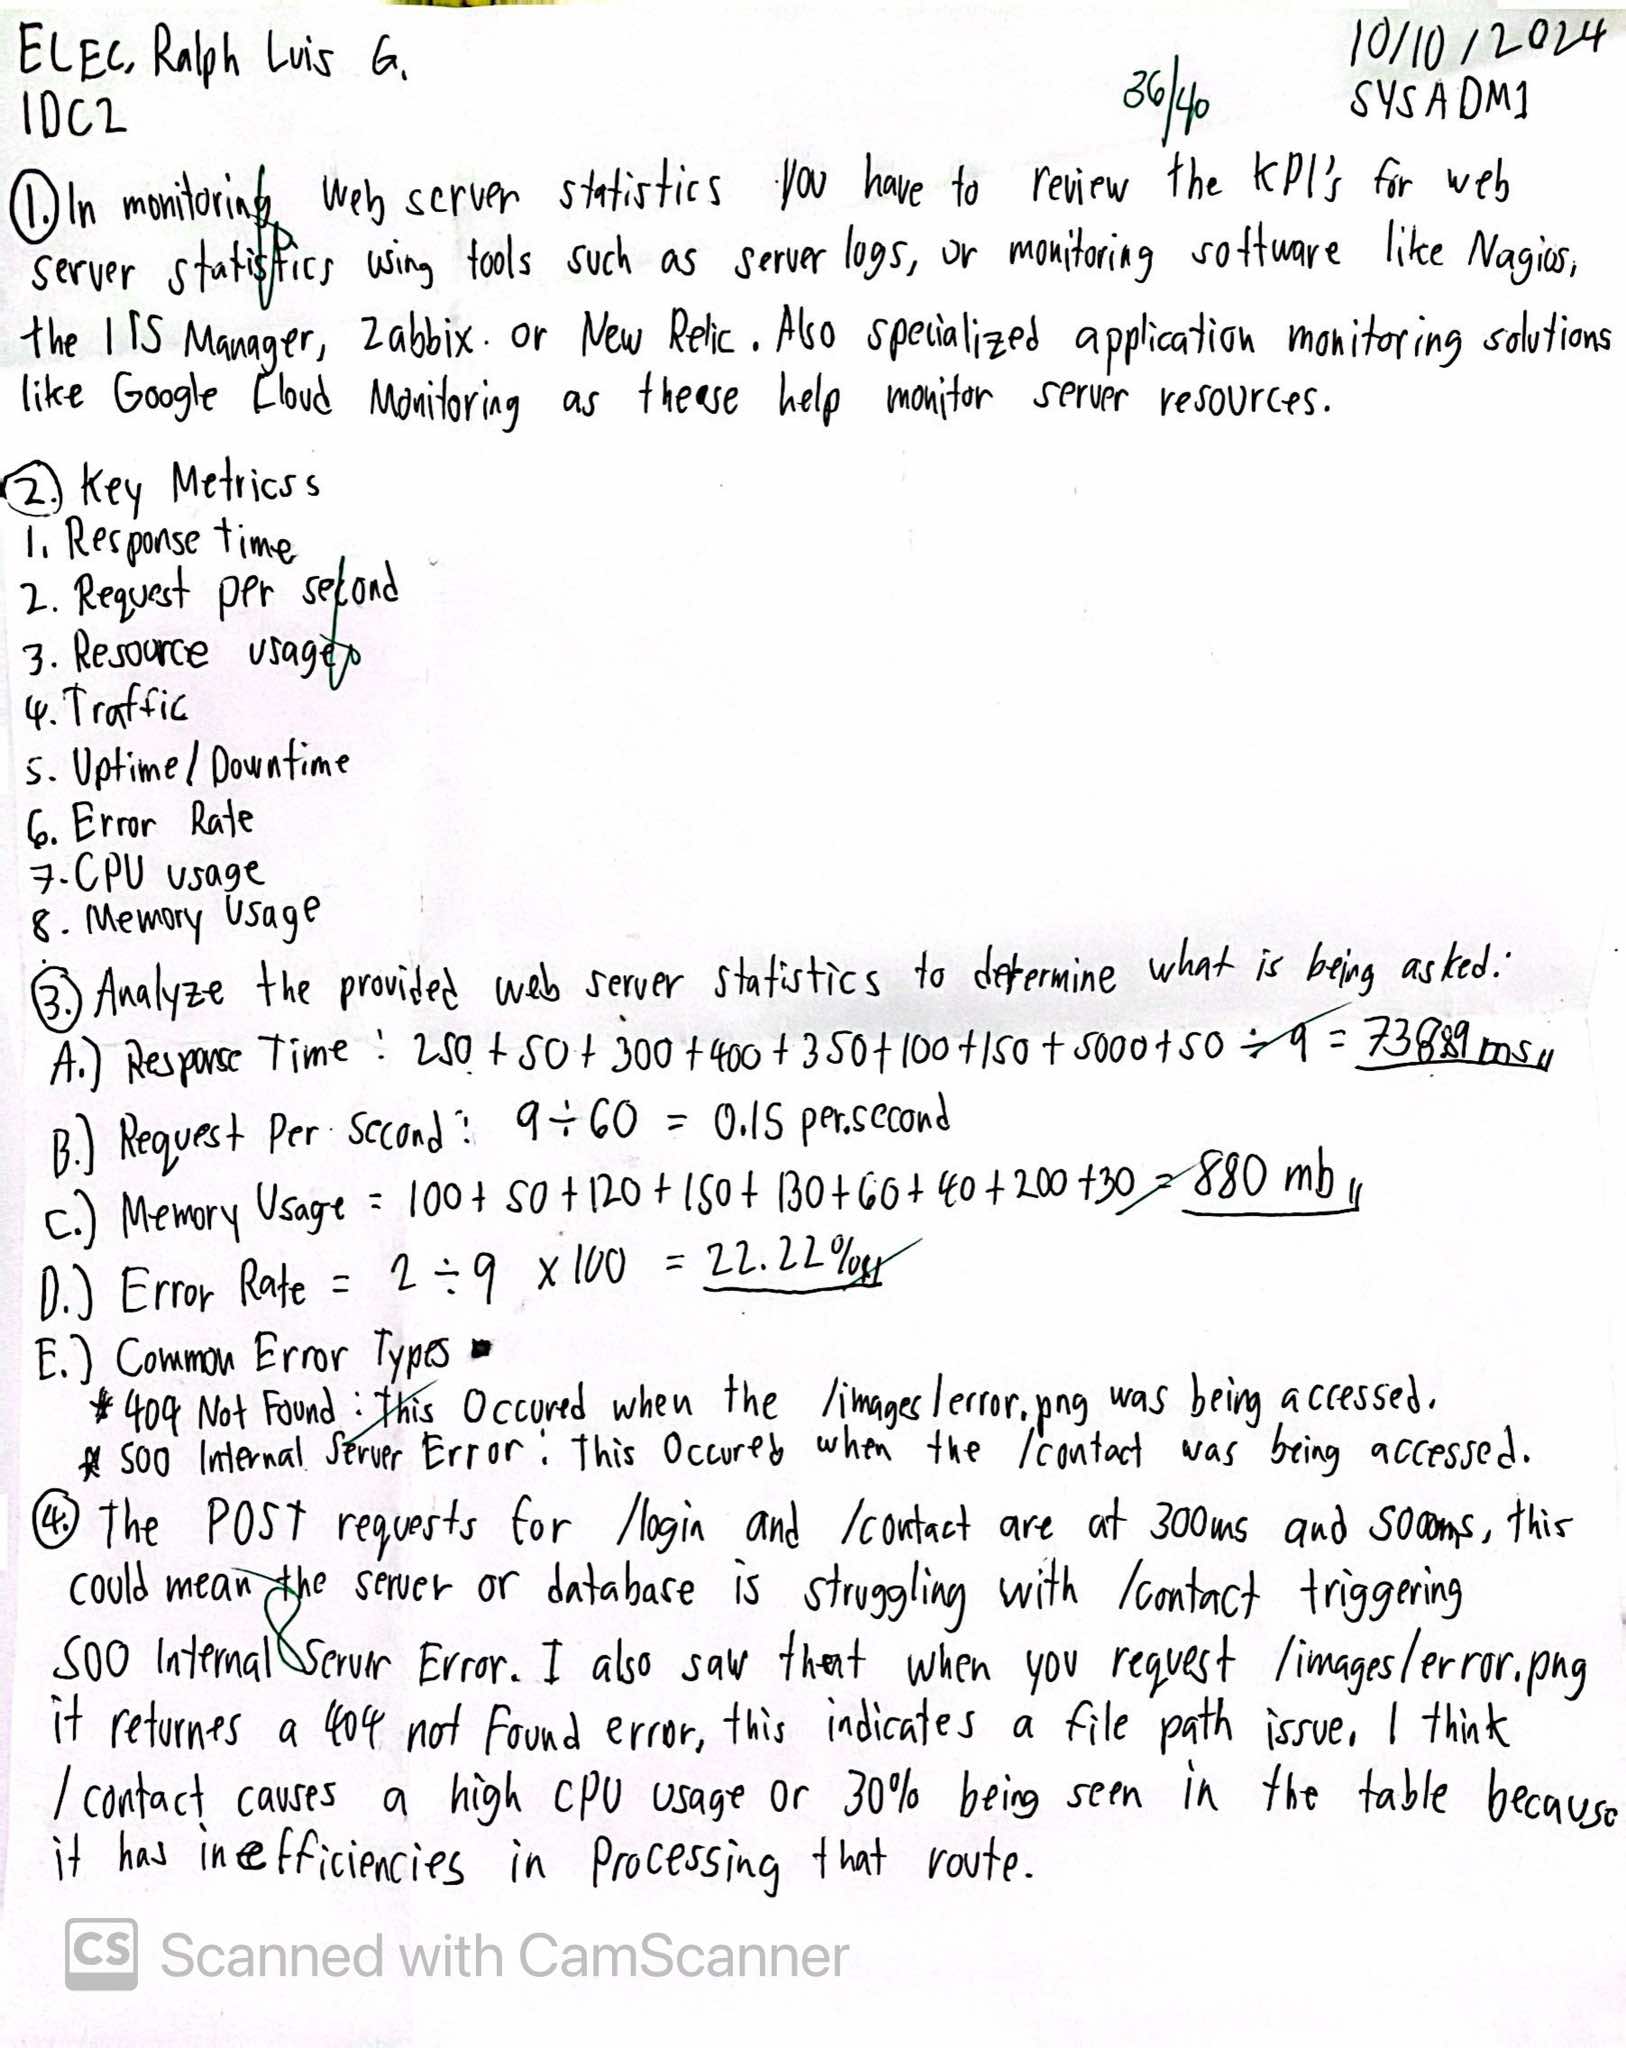 ELEC, Ralph Luis G.
10/10/2024
1DC2
36/40
SYSADM1
1. In monitoring web server statistics you have to review the KPI's for web
server statistics using tools such as server logs, or monitoring software like Nagios,
the IIS Manager, Zabbix. or New Relic. Also specialized application monitoring solutions
like Google Cloud Monitoring as these help monitor server resources.
2. Key Metricss
1. Response time
2. Request per second
3. Resource usage
4. Traffic
5. Uptime/Downtime
6. Error Rate
7. CPU usage
8. Memory Usage
3. Analyze the provided web server statistics to determine what is being asked:
A.) Response Time : 250 + 50 + 300 + 400 + 350 + 100 + 150 + 5000 + 50 ÷ 9 = 738.89 ms
B.) Request Per Second : 9 ÷ 60 = 0.15 per.second
C.) Memory Usage = 100 + 50 + 120 + 150 + 130 + 60 + 40 + 200 + 30 = 880 mb
D.) Error Rate = 2 ÷ 9 x 100 = 22.22%
E.) Common Error Types
* 404 Not Found : This Occured when the /images/error.png was being accessed.
* 500 Internal Server Error : This Occured when the /contact was being accessed.
4. The POST requests for /login and /contact are at 300ms and 5000ms, this
could mean the server or database is struggling with /contact triggering
500 Internal Server Error. I also saw that when you request /images/error.png
it returnes a 404 not found error, this indicates a file path issue. I think
/contact causes a high CPU usage or 30% being seen in the table because
it has inefficiencies in Processing that route.
CS Scanned with CamScanner